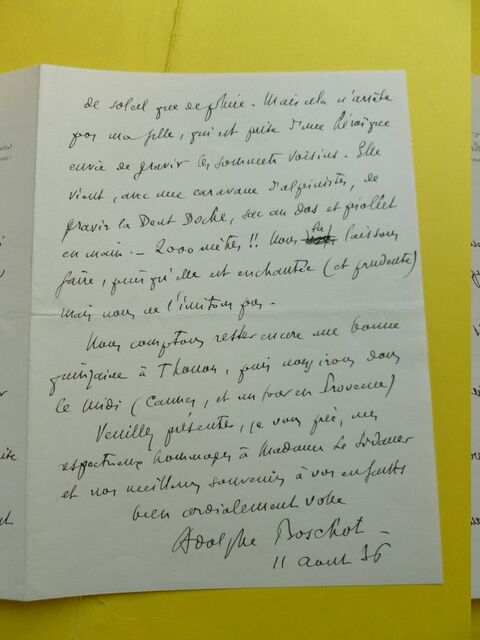 de soleil que de pluie. Mais cela n'arrête
pas ma fille, qui est prise d'une héroïque
envie de gravir les sommets voisins. Elle
vient, avec une caravane d'alpinistes, de
gravir la Dent Doche, sac au dos et piollet
en main. – 2000 mètres !! Nous la laissons
faire, puisqu'elle est enchantée (et prudente)
mais nous ne l'imitons pas.
Nous comptons rester encore une bonne
quinzaine à Thonon, puis nous irons dans
le Midi (Cannes, et un tour en Provence)
Veuillez présenter, je vous prie, mes
respectueux hommages à Madame Le Sidaner
et nos meilleurs souvenirs à vos enfants
bien cordialement votre
Adolphe Boschot –
11 aout 36